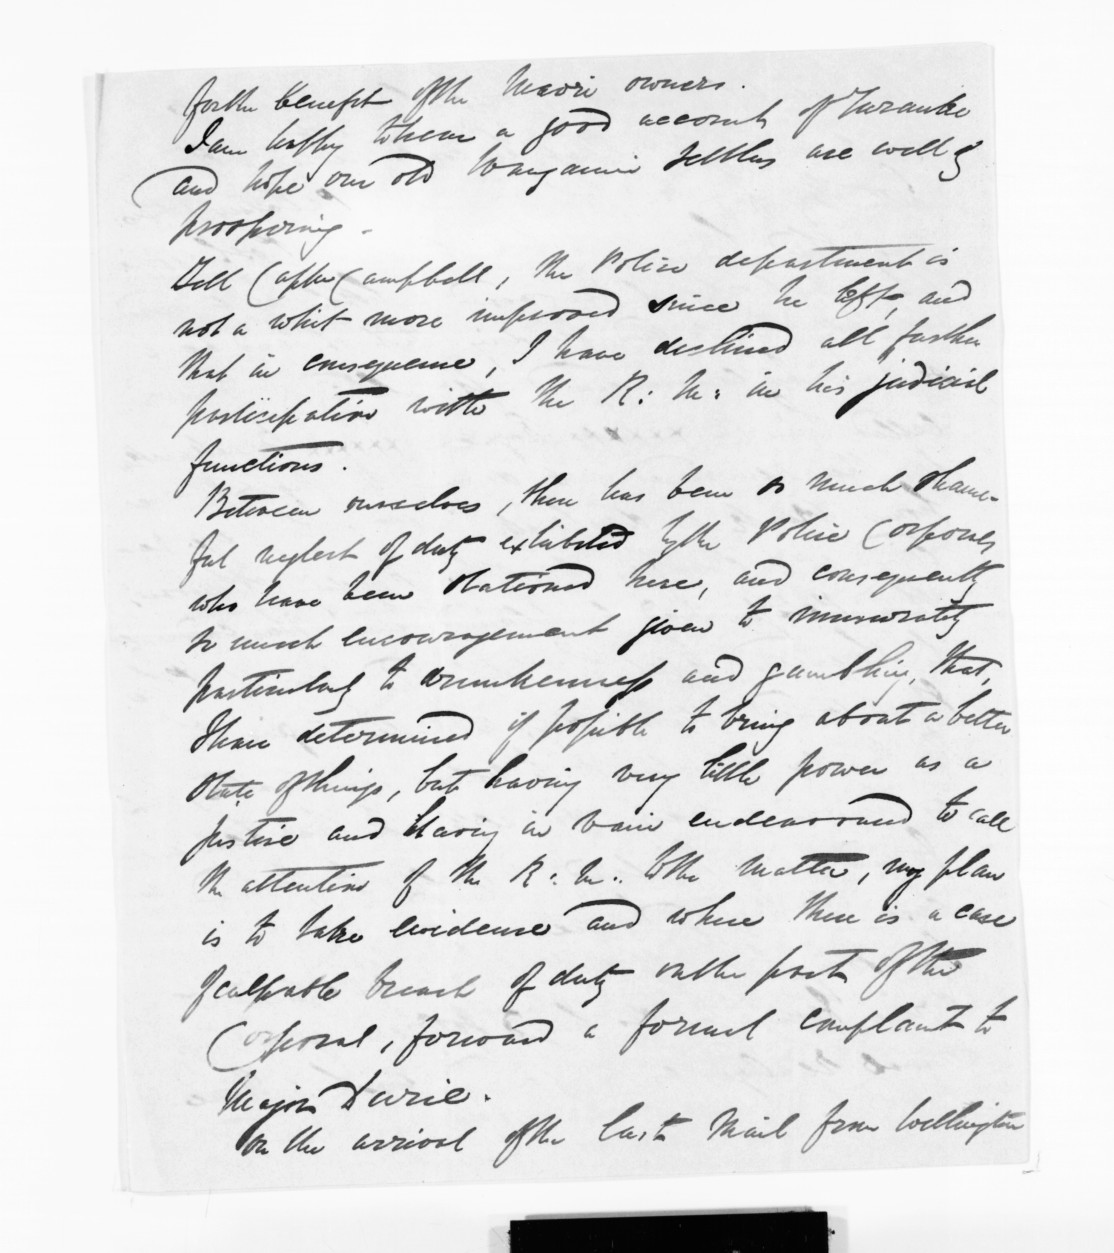 for the benefit of the Maori owners.
I am happy to hear a good account of Taranaki
and hope our old Wanganui settlers are well &
prospering.
Tell Captn Campbell, the Police department is
not a whit more improved since he left, and
that in consequence, I have declined all further
participation with the R: M: in his judicial
functions.
Between ourselves, there has been so much shame-
ful neglect of duty exhibited by the Police Corporals
who have been stationed here, and consequently
so much encouragement given to immorality
particularly to drunkenness and gambling, that,
I have determined if possible to bring about a better
state of things, but having very little power as a
Justice and having in vain endeavoured to call
the attention of the R: M: to the matter, my plan
is to take evidence and where there is a case
of culpable breach of duty on the part of the
Corporal, forward a formal complaint to
Major Durie.
On the arrival of the last Mail from Wellington